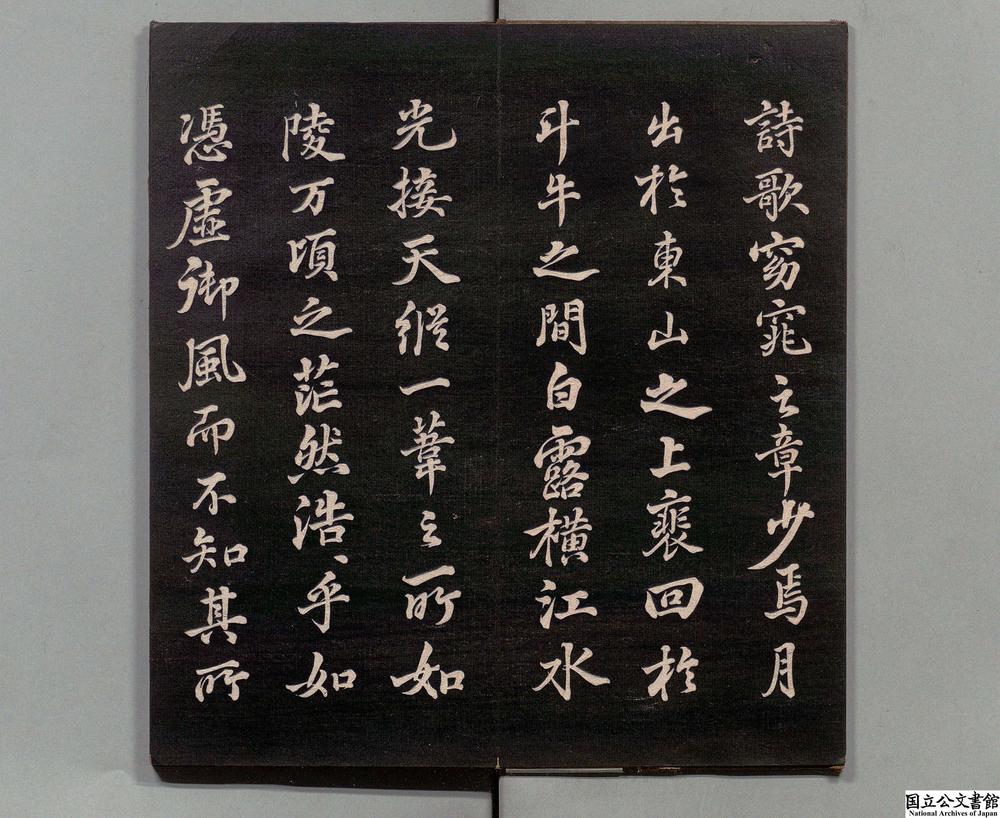 詩歌窈窕之章少焉月
出於東山之上裵回於
斗牛之間白露橫江水
光接天縱一葦之所如
陵万頃之茫然浩〻乎如
憑虛御風而不知其所
国立公文書館
National Archives of Japan